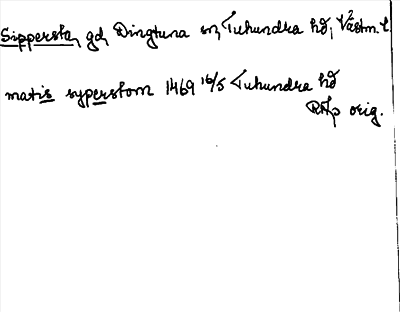 Sippersta, gd, Dingtuna sn, Tuhundra hd, Västm. l.
matis syperstom 1469 16/5 Tuhundra hd
RAp orig.